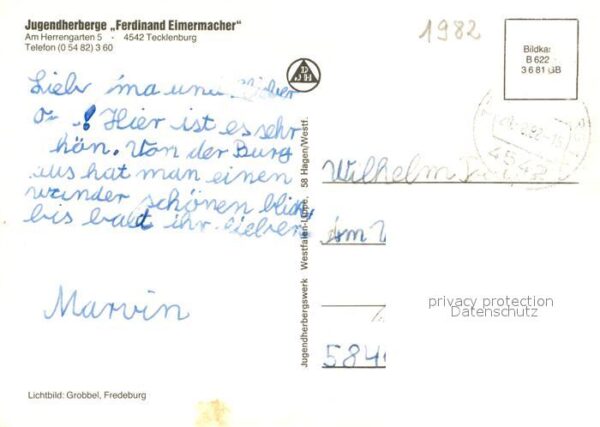 Jugendherberge „Ferdinand Eimermacher"
Am Herrengarten 5 · 4542 Tecklenburg
Telefon (0 54 82) 3 60
1982
Bildka
B 622
3 6 81 GB
DJH
Lieb ma und lieber
o ! Hier ist es sehr
hön. Von der Burg
aus hat man einen
wunder schönen blick
bis bald ihr lieben
Marvin
Jugendherbergswerk Westfalen-Lippe, 58 Hagen/Westf.
4542
Wilhelm
584
privacy protection
Datenschutz
Lichtbild: Grobbel, Fredeburg